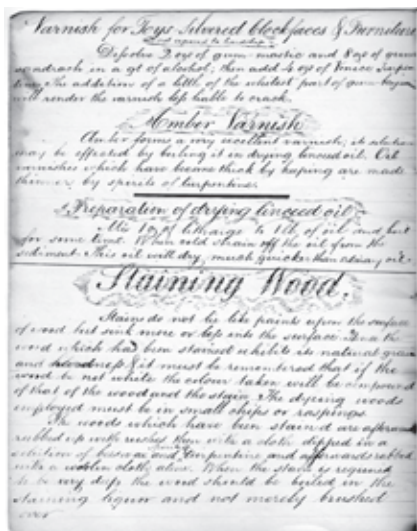 Varnish for Toys Silvered Clockfaces & Furniture
Not exposed to hardship
Dissolve 2 ozs of gum mastic and 8 ozs of gum
sandrach in a qt of alcohol; then add 4 ozs of Venice Turpen
tine. The addition of a little of the whitest part of gum benzoin
will render the varnish less liable to crack.
Amber Varnish
Amber forms a very excellent varnish; its solution
may be effected by boiling it in drying linseed oil. Oil
varnishes which have become thick by keeping are made
thinner by spirits of turpentine.
Preparation of drying linseed oil
Mix 1 oz of litharge to 1 lb of oil and boil
for some time. When cold strain off the oil from the
sediment. This oil will dry much quicker than oil
Staining Wood.
Stains do not lie like paints upon the surface
of wood but sink more or less into the surface. Thus the
wood which had been stained exhibits its natural grain
and hardness & it must be remembered that if the
wood be not white the colour taken will be compound
of that of the wood and the stain. The dyeing woods
employed must be in small chips or raspings.
The woods which have been stained are afterwards
rubbed up with rushes then with a cloth dipped in a
solution of beeswax and turpentine and afterwards rubbed
with a woolen cloth alone. When the stain is required
to be very deep the wood should be boiled in the
staining liquor and not merely brushed
over